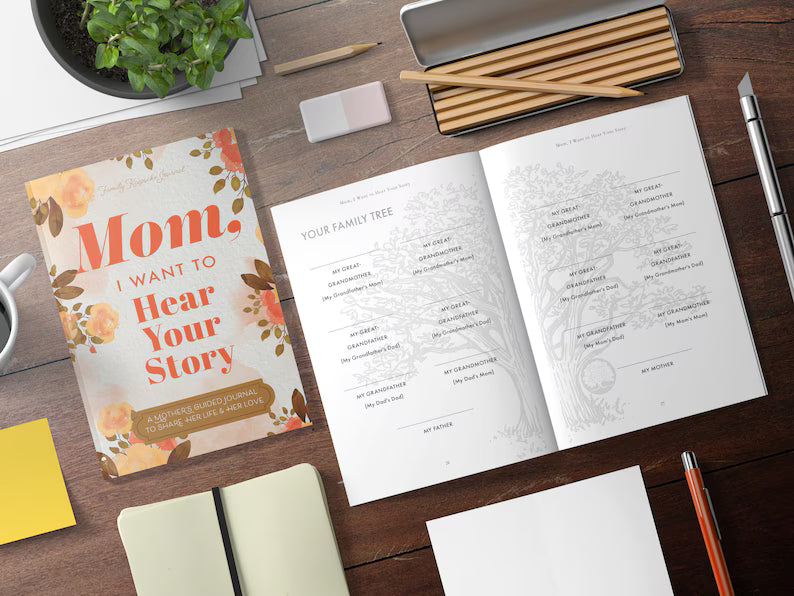 Family Keepsake Journal
Mom,
I WANT TO
Hear
Your
Story
A MOTHER'S GUIDED JOURNAL
TO SHARE HER LIFE & HER LOVE
Mom, I Want to Hear Your Story
YOUR FAMILY TREE
MY GREAT-
GRANDMOTHER
(My Grandfather's Mom)
MY GREAT-
GRANDMOTHER
(My Grandmother's Mom)
MY GREAT-
GRANDFATHER
(My Grandfather's Dad)
MY GREAT-
GRANDFATHER
(My Grandmother's Dad)
MY GRANDFATHER
(My Dad's Dad)
MY GRANDMOTHER
(My Dad's Mom)
MY FATHER
Mom, I Want to Hear Your Story
MY GREAT-
GRANDMOTHER
(My Grandfather's Mom)
MY GREAT-
GRANDMOTHER
(My Grandmother's Mom)
MY GREAT-
GRANDFATHER
(My Grandfather's Dad)
MY GREAT-
GRANDFATHER
(My Grandmother's Dad)
MY GRANDFATHER
(My Mom's Dad)
MY GRANDMOTHER
(My Mom's Mom)
MY MOTHER